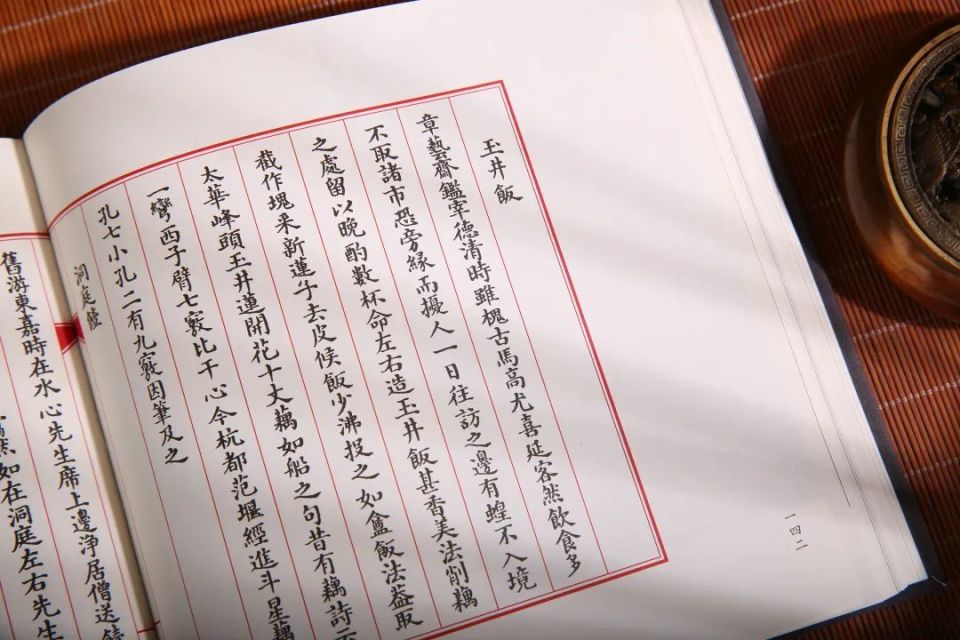 玉井飯
章藝齋鑑宰德清時雖槐古馬高尤喜延客然飲食多
不取諸市恐旁緣而擾人一日往訪之邊有蝗不入境
之處留以晚酌數杯命左右造玉井飯甚香美法削藕
截作塊采新蓮子去皮候飯少沸投之如盦飯法蓋取
太華峰頭玉井蓮開花十丈藕如船之句昔有藕詩云
一彎西子臂七竅比干心今杭都范堰經進斗星藕
孔七小孔二有九竅因筆及之
洞庭饐
舊游東嘉時在水心先生席上邊淨居僧送
然如在洞庭左右先生
一四二